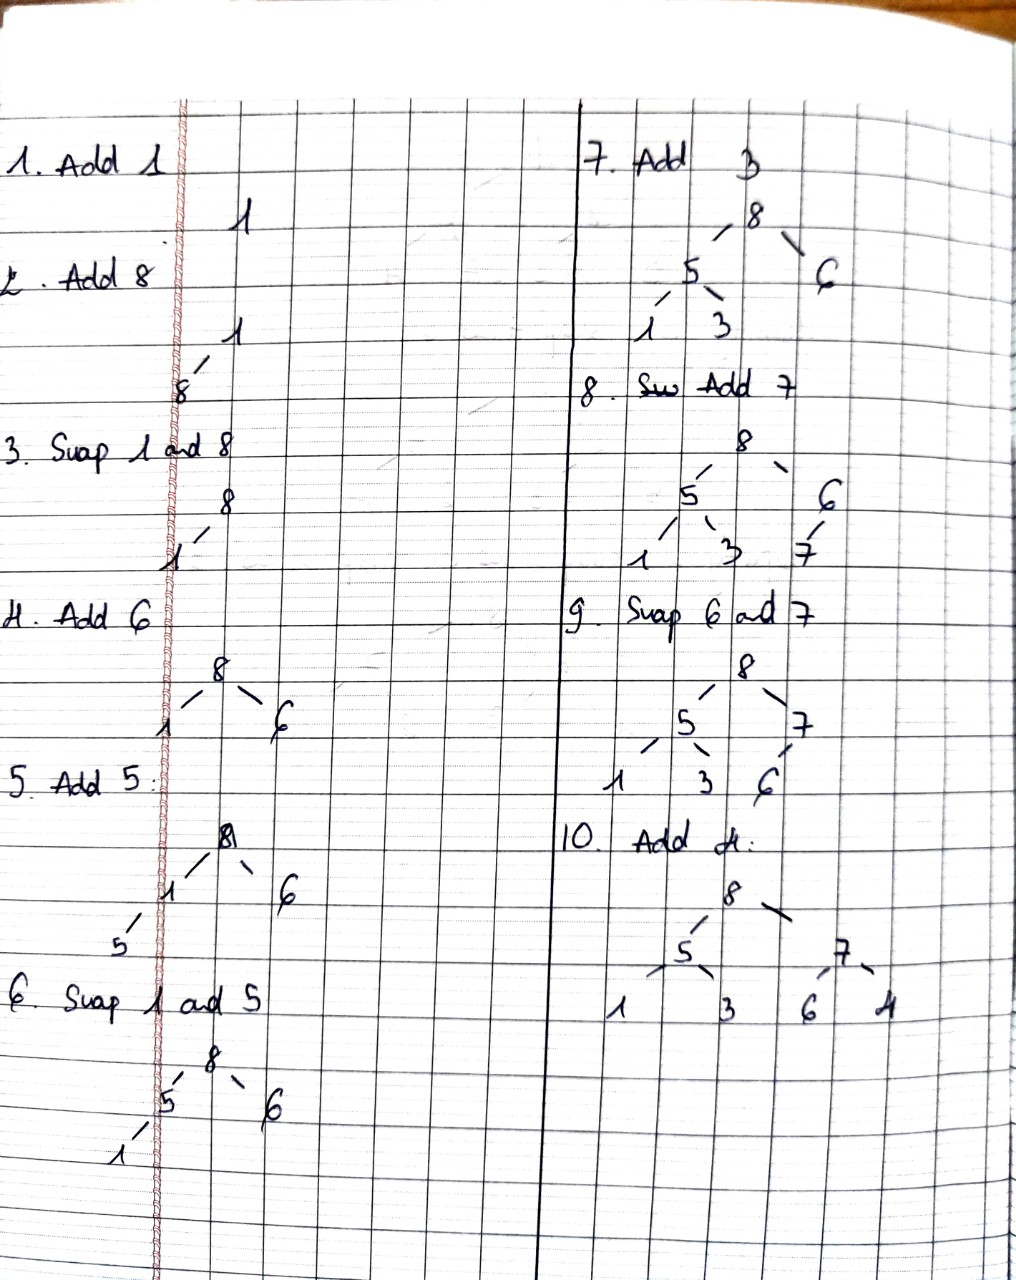 1. Add 1
1
2. Add 8
1
8
3. Swap 1 and 8
8
1
4. Add 6
8
1 6
5. Add 5:
8
1 6
5
6. Swap 1 and 5
8
5 6
1
7. Add 3
8
5 6
1 3
8. Sw Add 7
8
5 6
1 3 7
9. Swap 6 and 7
8
5 7
1 3 6
10. Add 4:
8
5 7
1 3 6 4